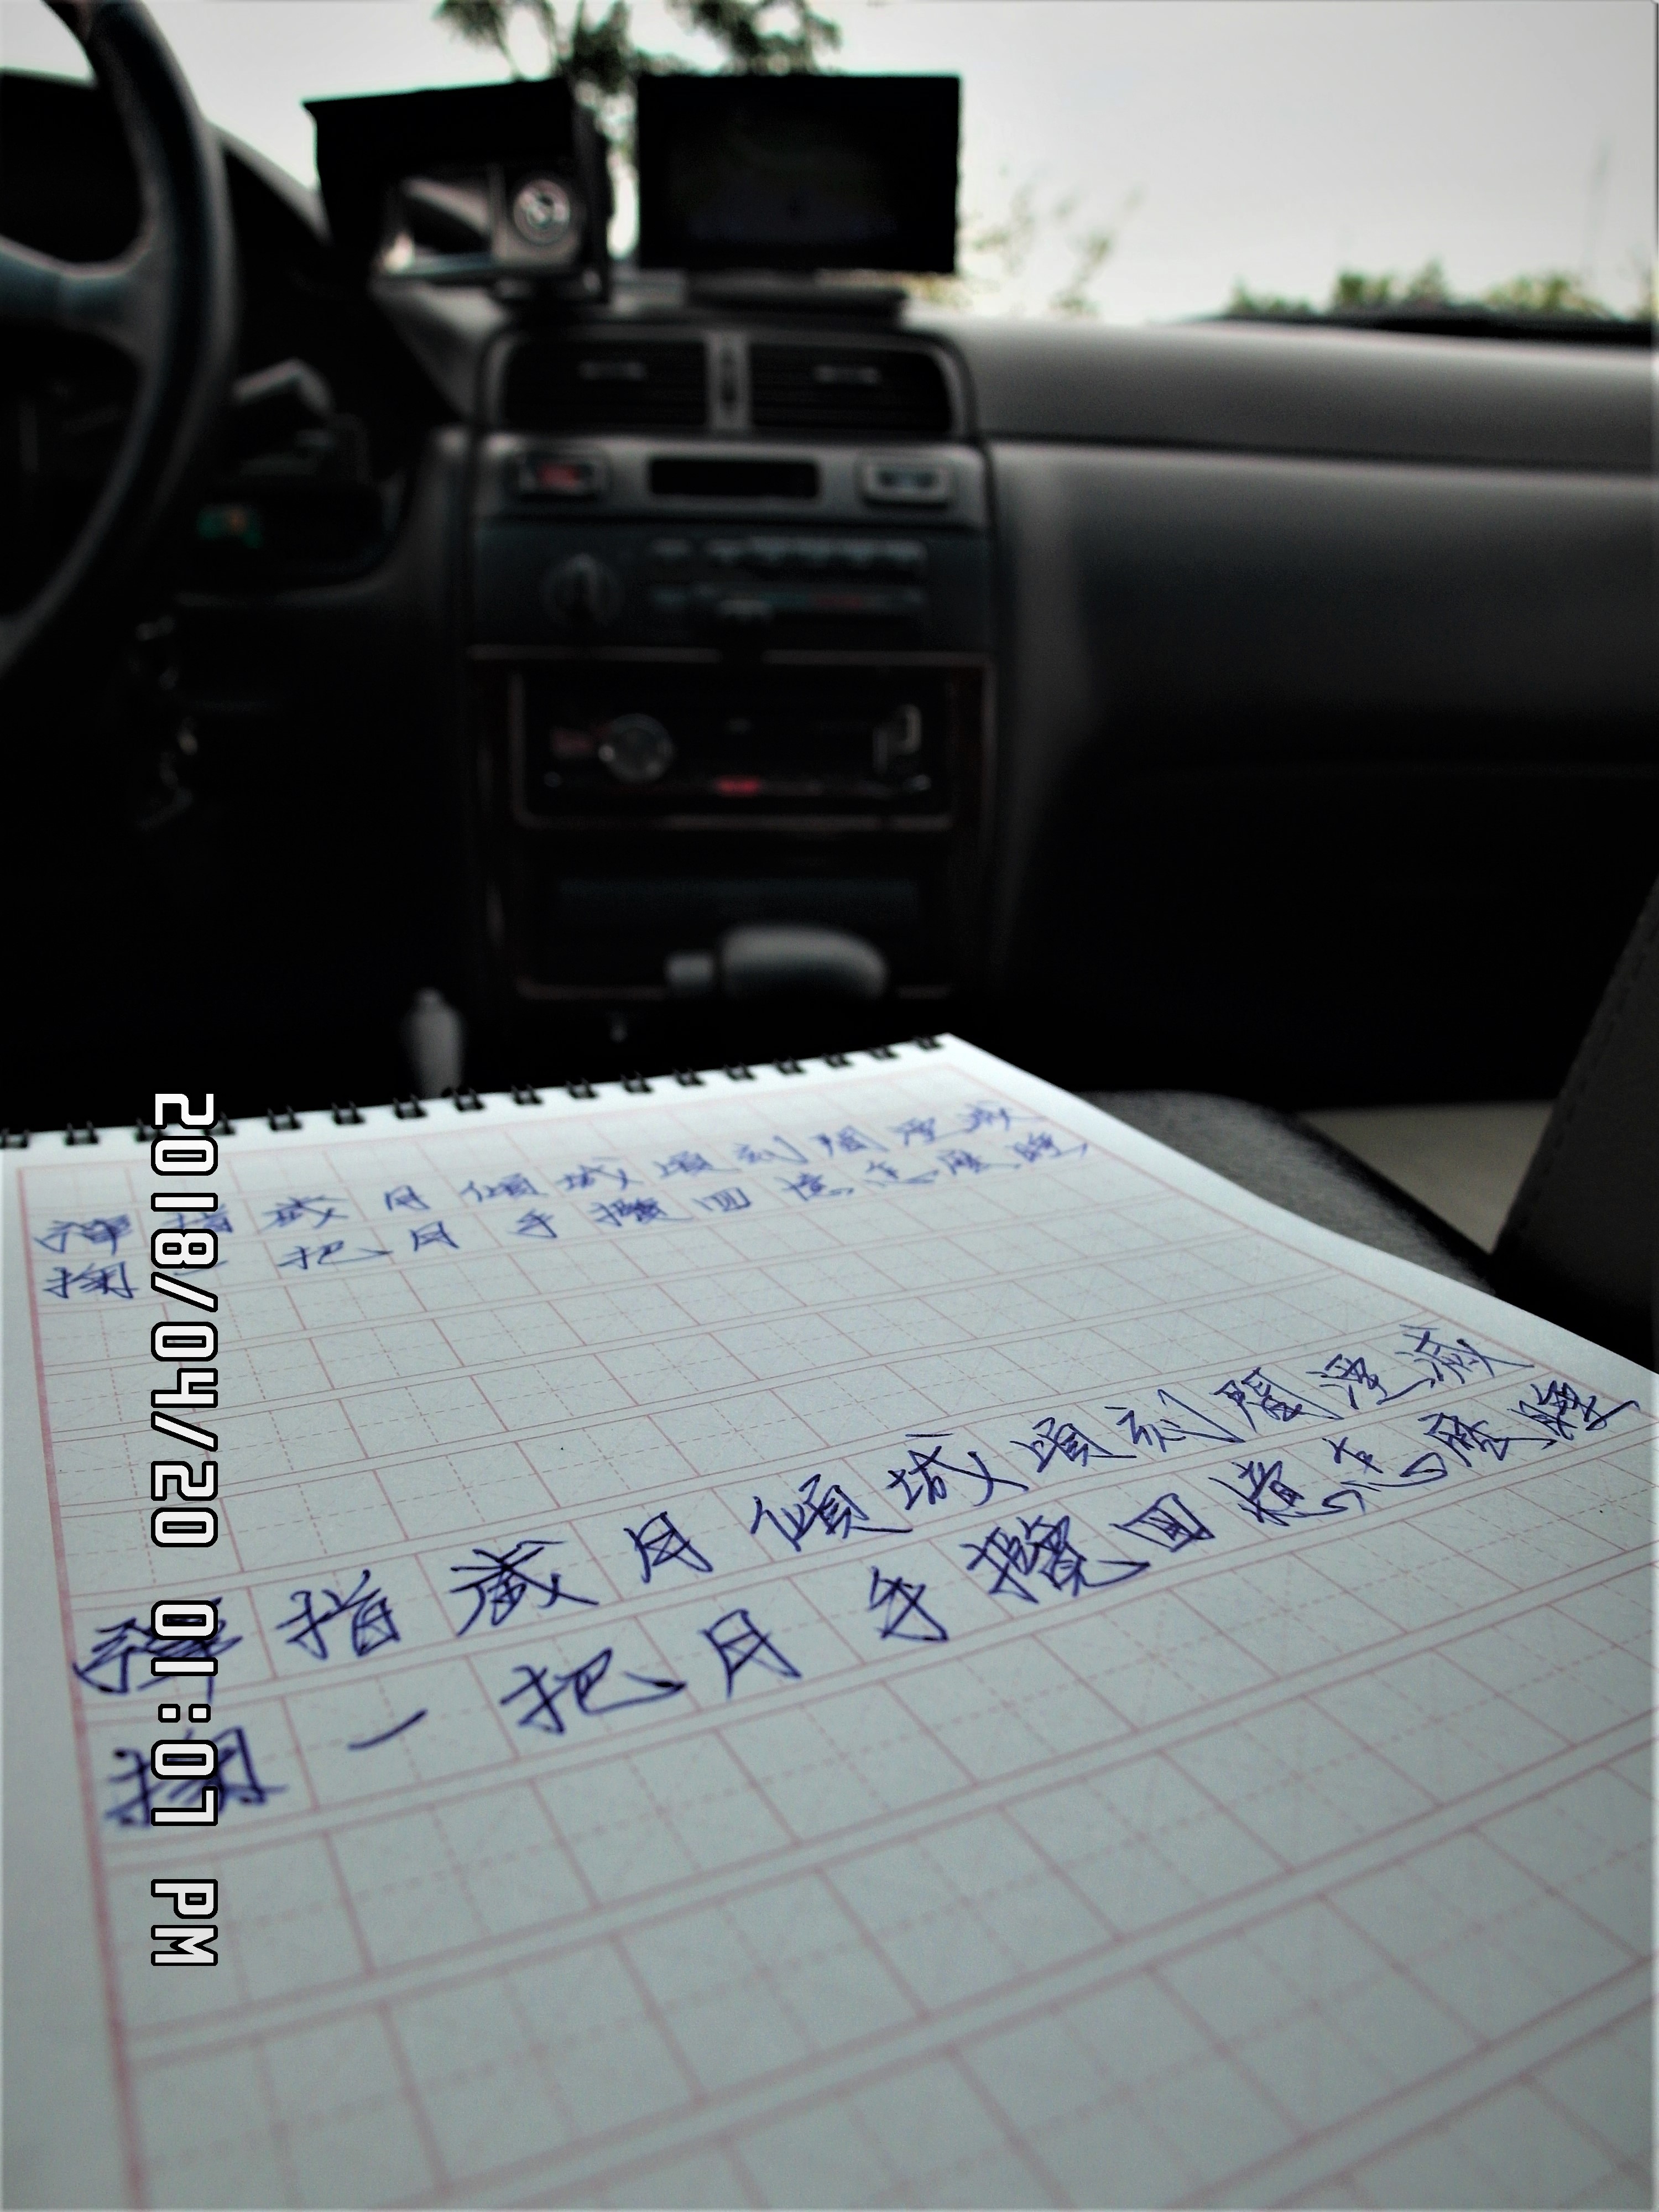 彈指歲月傾城頃刻間湮滅
掬一把月手攬回憶怎麼睡
彈指歲月傾城頃刻間湮滅
掬一把月手攬回憶怎麼睡
2018/04/20 01:07 PM